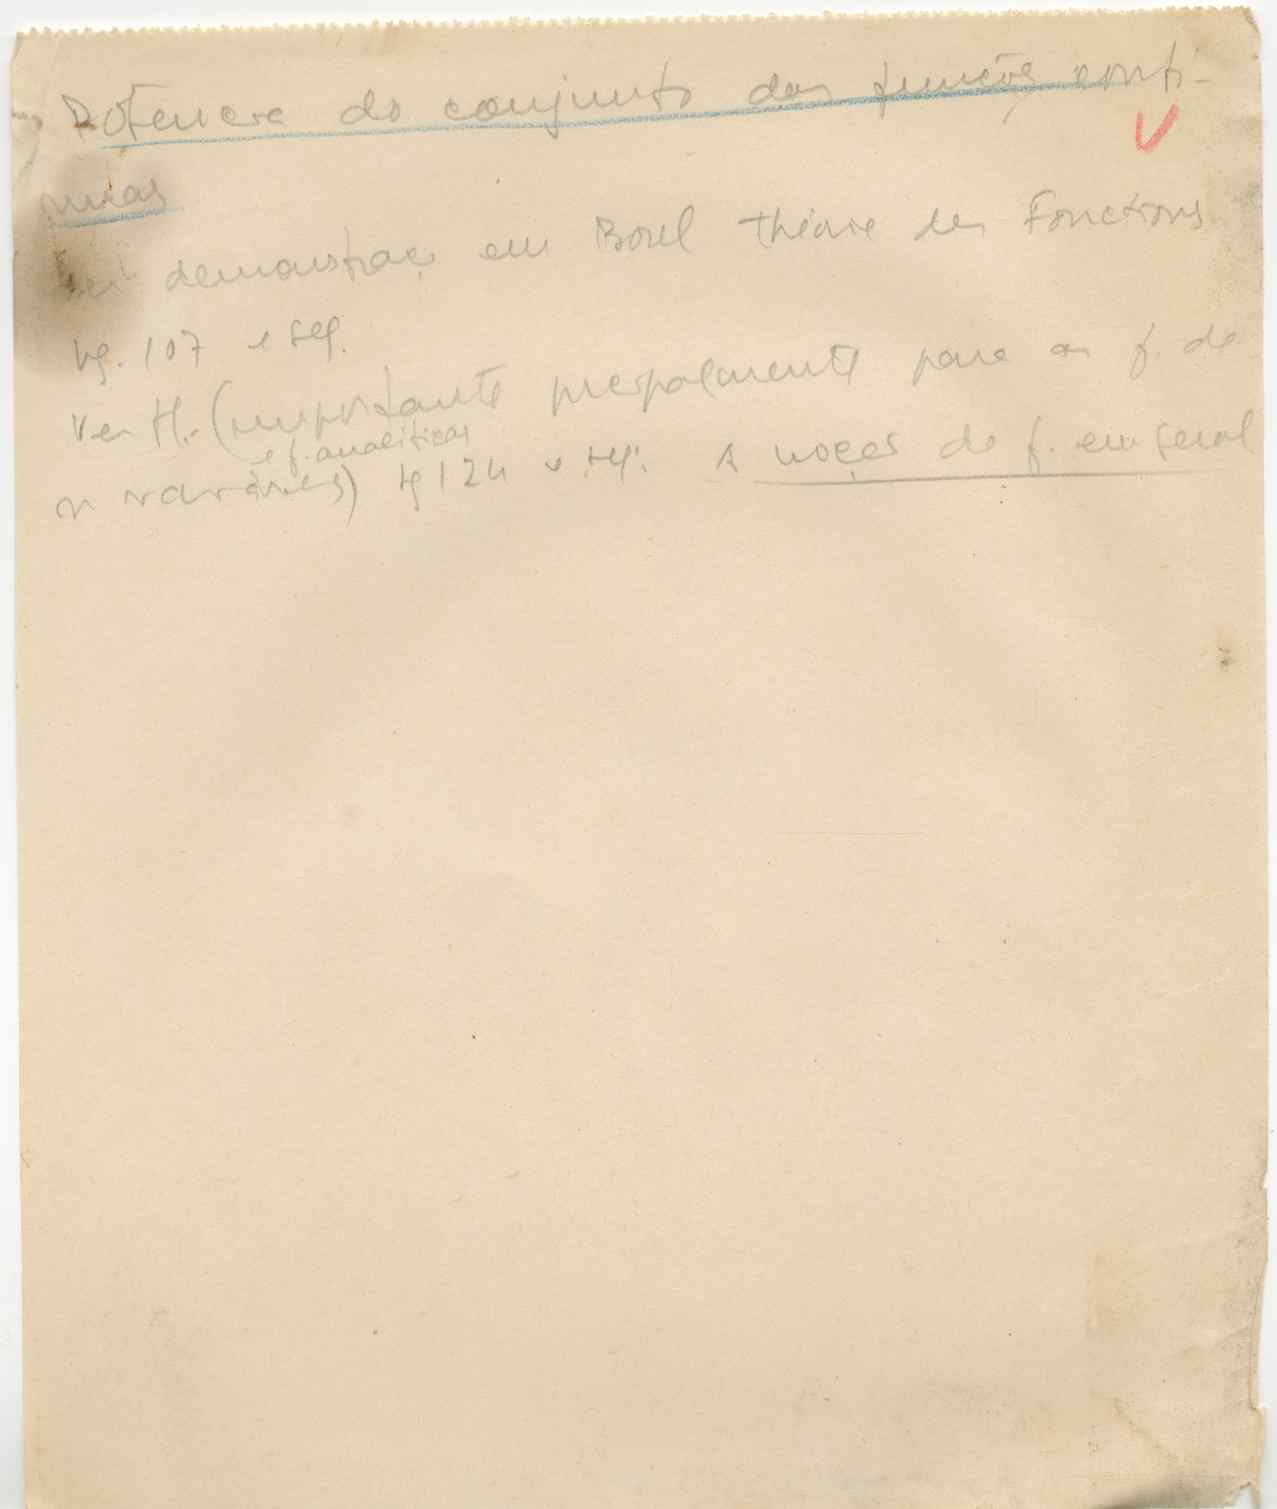 Potencia do conjunto das funções contí-
nuas
Ver demonstração em Borel Théorie des Fonctions
pg. 107 e seg.
Ver H. (importante principalmente para as f. de
e f. analíticas
n variáveis) pg 124 e seg. A noção de f. em geral